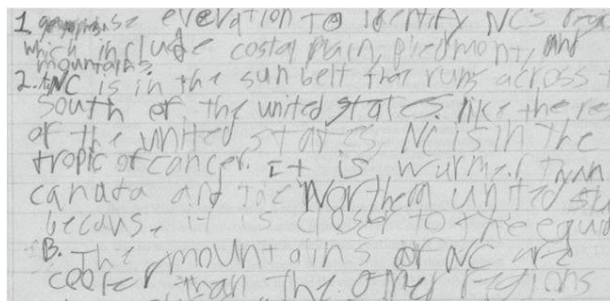 1. use elevation to identify NC's
which include costal plain, piedmont, and
mountains.
2. A. NC is in the sun belt that runs across
south of the united states. like the re
of the united states, NC is in the
tropic of cancer. It is wurmer than
canada and the Northern united sta
because it is closer to the equa
B. The mountains of NC are
cooler than the other regions